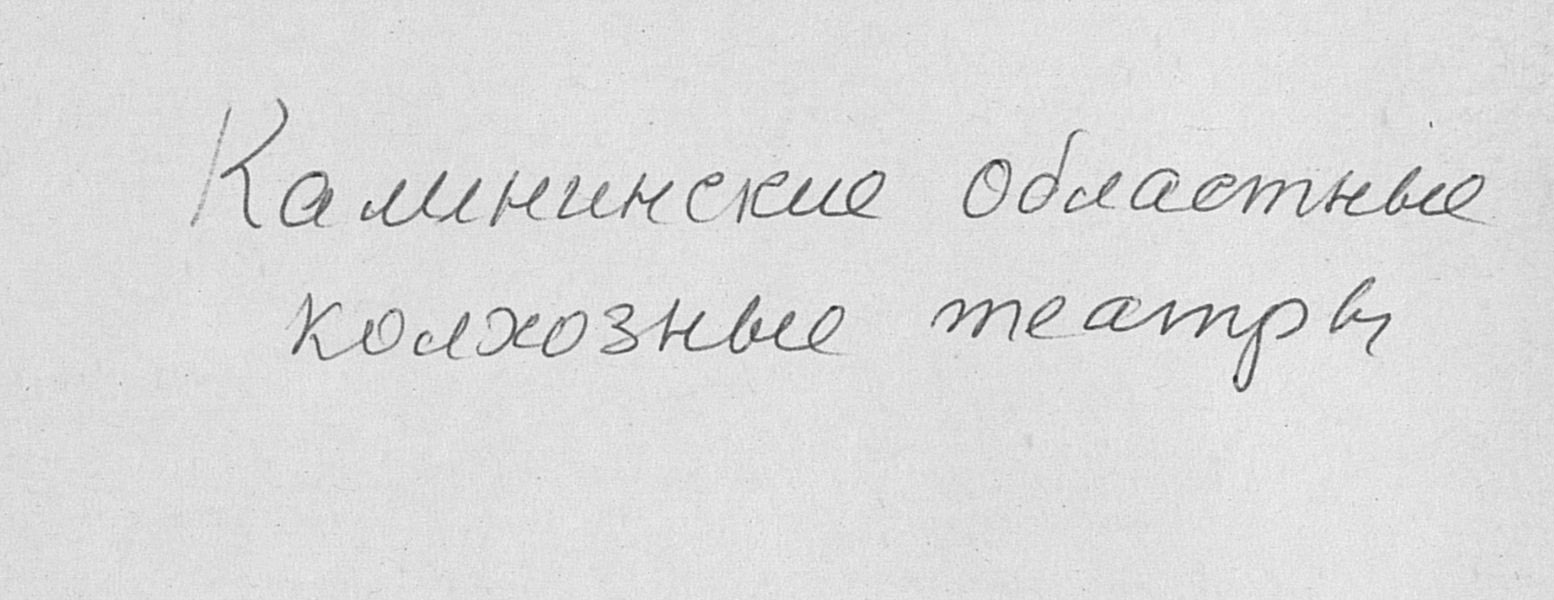 Калининские областные
колхозные театры